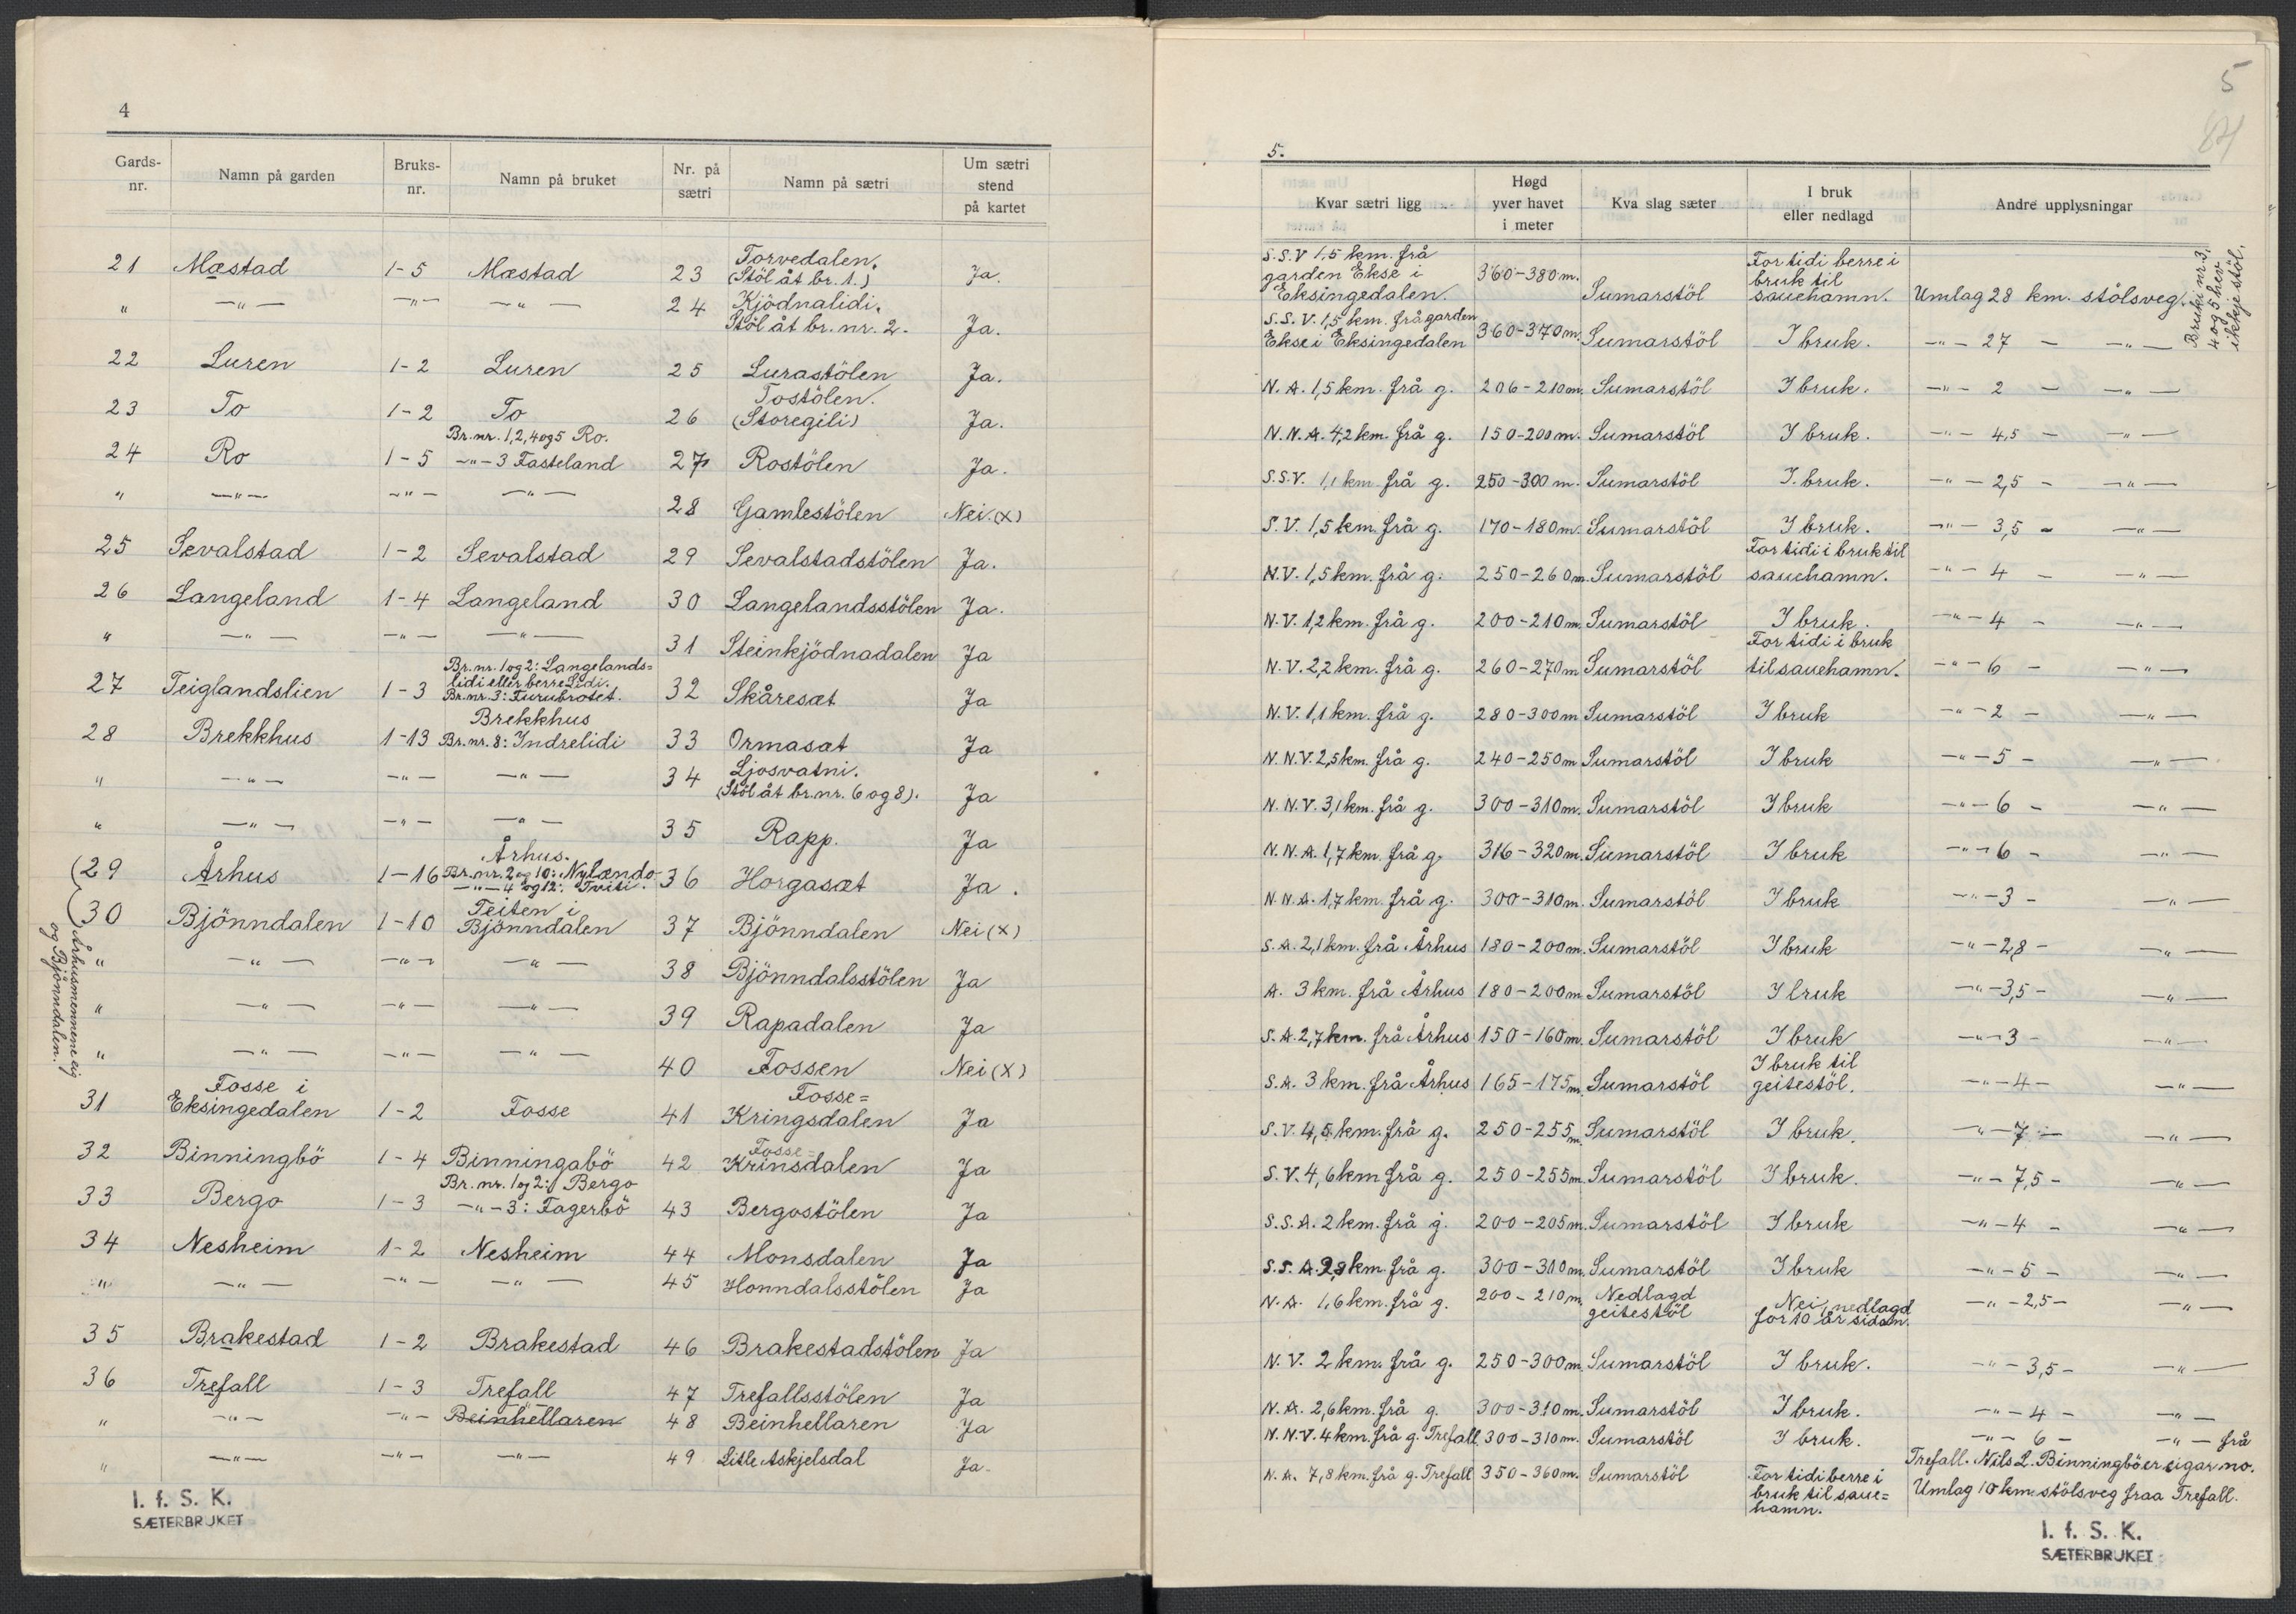 4
Gards-nr. Namn på garden Bruks-nr. Namn på bruket Nr. på sætri Namn på sætri Um sætri stend på kartet
21 Mæstad 1-5 Mæstad 23 Torvedalen. (Stöl åt br. 1.) Ja.
" —"— —"— —"— 24 Kjödnalidi. Stöl åt br. nr. 2. Ja.
22 Luren 1-2 Luren 25 Lurastölen Ja.
23 To 1-2 To 26 Tostölen. (Storegili) Ja.
24 Ro 1-5 Br. nr. 1, 2, 4 og 5 Ro. —"— 3 Fasteland 27 Rostölen Ja.
" —"— —"— —"— 28 Gamlestölen Nei. (X)
25 Sevalstad 1-2 Sevalstad 29 Sevalstadstölen Ja.
26 Langeland 1-4 Langeland 30 Langelandsstölen Ja.
" —"— —"— —"— 31 Steinkjödnadalen Ja
27 Teiglandslien 1-3 Br. nr. 1 og 2: Langelands= lidi eller berre Lidi. Br. nr. 3: Furubrotet. 32 Skåresæt Ja
28 Brekkhus 1-13 Brekkhus Br. nr. 8: Indrelidi 33 Ormasæt Ja
" —"— —"— —"— 34 Ljosvatni. (Stöl åt br. nr. 6 og 8). Ja
" —"— —"— —"— 35 Rapp. Ja
(29 Århus 1-16 Århus. Br. nr. 2 og 10: Nylændo —"— 4 og 12: Tviti. 36 Horgasæt Ja.
30 Bjönndalen 1-10 Teiten i Bjönndalen 37 Bjönndalen Nei (X)
" —"— —"— —"— 38 Bjönndalsstölen Ja
" —"— —"— —"— 39 Rapadalen Ja
" —"— —"— —"— 40 Fossen Nei (X)
Århusmennene eig og Bjönndalen.
31 Fosse i Eksingedalen 1-2 Fosse 41 Fosse= Kringsdalen Ja
32 Binningbö 1-4 Binningabö 42 Fosse= Krinsdalen Ja
33 Bergo 1-3 Br. nr. 1 og 2: Bergo —"— 3: Fagerbö 43 Bergostölen Ja
34 Nesheim 1-2 Nesheim 44 Monsdalen Ja
" —"— —"— —"— 45 Honndalsstölen Ja
35 Brakestad 1-2 Brakestad 46 Brakestadstölen Ja
36 Trefall 1-3 Trefall 47 Trefallsstölen Ja
" —"— —"— Beinhellaren 48 Beinhellaren Ja
" —"— —"— —"— 49 Litle Askjelsdal Ja.
I. f. S. K.
SÆTERBRUKET
5
5.
Kvar sætri ligg Høgd yver havet i meter Kva slag sæter I bruk eller nedlagd Andre upplysningar
S.S.V 1,5 km. frå garden Ekse i Eksingedalen. 360-380 m. Sumarstöl For tidi berre i bruk til sauehamn. Umlag 28 km. stölsveg.
S.S.V. 1,5 km. frå garden Ekse i Eksingedalen 360-370 m. Sumarstöl I bruk. —"— 27 — —"—
Bruki nr. 3, 4 og 5 hev ikkje stöl.
N.A. 1,5 km. frå g. 206-210 m. Sumarstöl I bruk. —"— 2 — —"—
N.N.A. 4,2 km. frå g. 150-200 m. Sumarstöl I bruk. —"— 4,5 — —"—
S.S.V. 1,1 km frå g. 250-300 m. Sumarstöl I. bruk. —"— 2,5 — —"—
S.V. 1,5 km. frå g. 170-180 m. Sumarstöl I bruk. —"— 3,5 — —"—
N.V. 1,5 km. frå g. 250-260 m Sumarstöl For tidi i bruk til sauehamn. —"— 4 — —"—
N.V. 1,2 km. frå g. 200-210 m. Sumarstöl I bruk. —"— 4 — —"—
N.V. 2,2 km. frå g. 260-270 m Sumarstöl For tidi i bruk til sauehamn. —"— 6 — —"—
N.V. 1,1 km. frå g. 280-300 m Sumarstöl I bruk —"— 2 — —"—
N.N.V. 2,5 km. frå g. 240-250 m Sumarstöl I bruk —"— 5 — —"—
N.N.V. 3,1 km. frå g. 300-310 m. Sumarstöl I bruk —"— 6 — —"—
N.N.A. 1,7 km. frå g. 316-320 m. Sumarstöl I bruk —"— 6 — —"—
N.N.A. 1,7 km. frå g. 300-310 m. Sumarstöl I bruk —"— 3 — —"—
S.A. 2,1 km. frå Århus 180-200 m. Sumarstöl I bruk —"— 2,8 — —"—
A. 3 km. frå Århus 180-200 m Sumarstöl I bruk —"— 3,5 — —"—
S.A. 2,7 km. frå Århus 150-160 m. Sumarstöl I bruk —"— 3 — —"—
S.A. 3 km. frå Århus 165-175 m. Sumarstöl I bruk til geitestöl. —"— 4 — —"—
S.V. 4,5 km. frå g. 250-255 m. Sumarstöl I bruk. —"— 7 — —"—
S.V. 4,6 km frå g. 250-255 m. Sumarstöl I bruk. —"— 7,5 — —"—
S.S.A. 2 km. frå g. 200-205 m. Sumarstöl I bruk —"— 4 — —"—
S.S.A. 2,8 km. frå g. 300-310 m. Sumarstöl I bruk —"— 5 — —"—
N.A. 1,6 km. frå g. 200-210 m. Nedlagd geitestöl Nei, nedlagd for 10 år sidan. —"— 2,5 — —"—
N.V. 2 km. frå g. 250-300 m. Sumarstöl I bruk. —"— 3,5 — —"—
N.A. 2,6 km. frå g. 300-310 m. Sumarstöl I bruk. —"— 4 — —"—
N.N.V. 4 km. frå g. Trefall 300-310 m. Sumarstöl I bruk. —"— 6 — —"— frå Trefall. Nils L. Binningbö er eigar no.
N.A. 7,8 km. frå g. Trefall 350-360 m. Sumarstöl For tidi berre i bruk til saue= hamn. Umlag 10 km. stölsveg fraa Trefall.
I. f. S. K.
SÆTERBRUKET